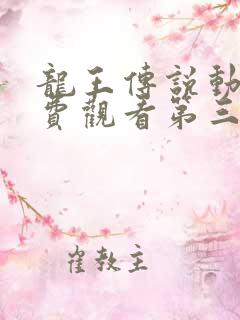 龍王傳說動
費觀看第三
崔教主